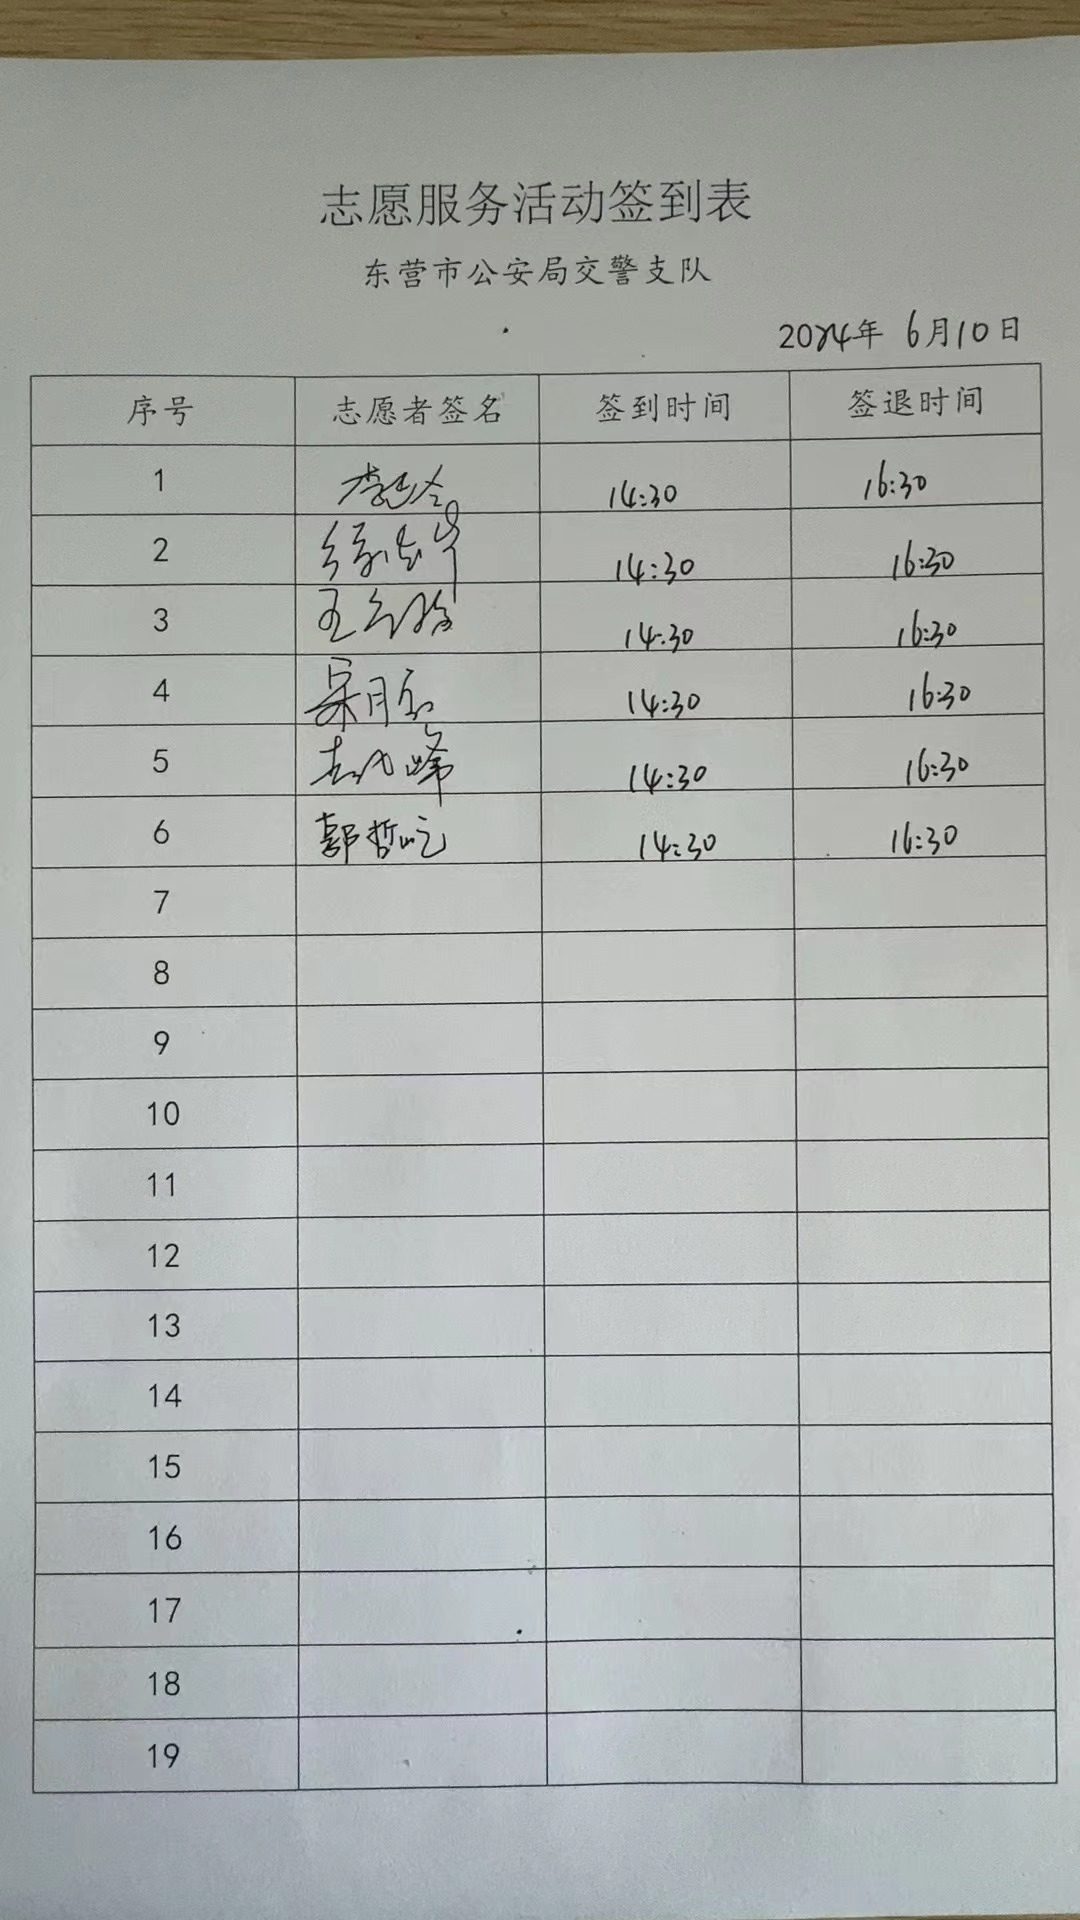 志愿服务活动签到表
东营市公安局交警支队
2024年 6月10日
序号 志愿者签名 签到时间 签退时间
1 14:30 16:30
2 14:30 16:30
3 王 14:30 16:30
4 14:30 16:30
5 峰 14:30 16:30
6 郭哲屹 14:30 16:30
7
8
9
10
11
12
13
14
15
16
17
18
19